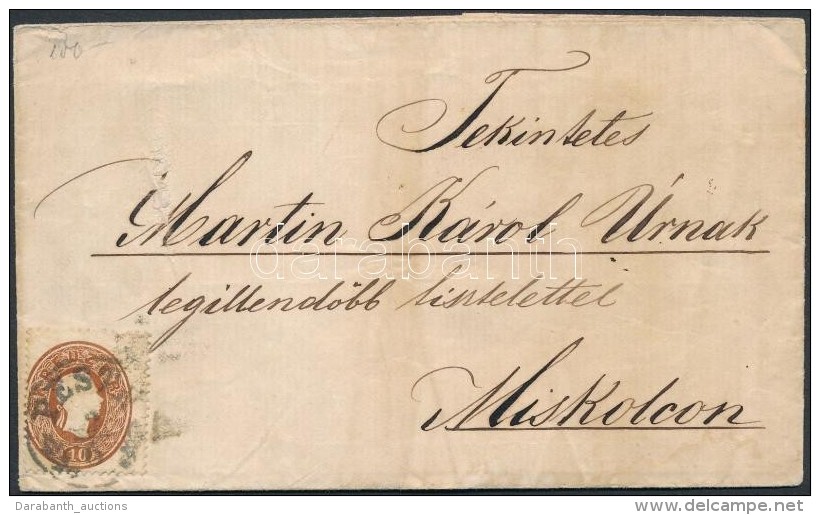 100-
Tekintetes
Martin Károl Úrnak
legillendőbb tisztelettel
Miskolcon
PEST
10
darabanth
Darabanth_auctions
www.delcampe.net